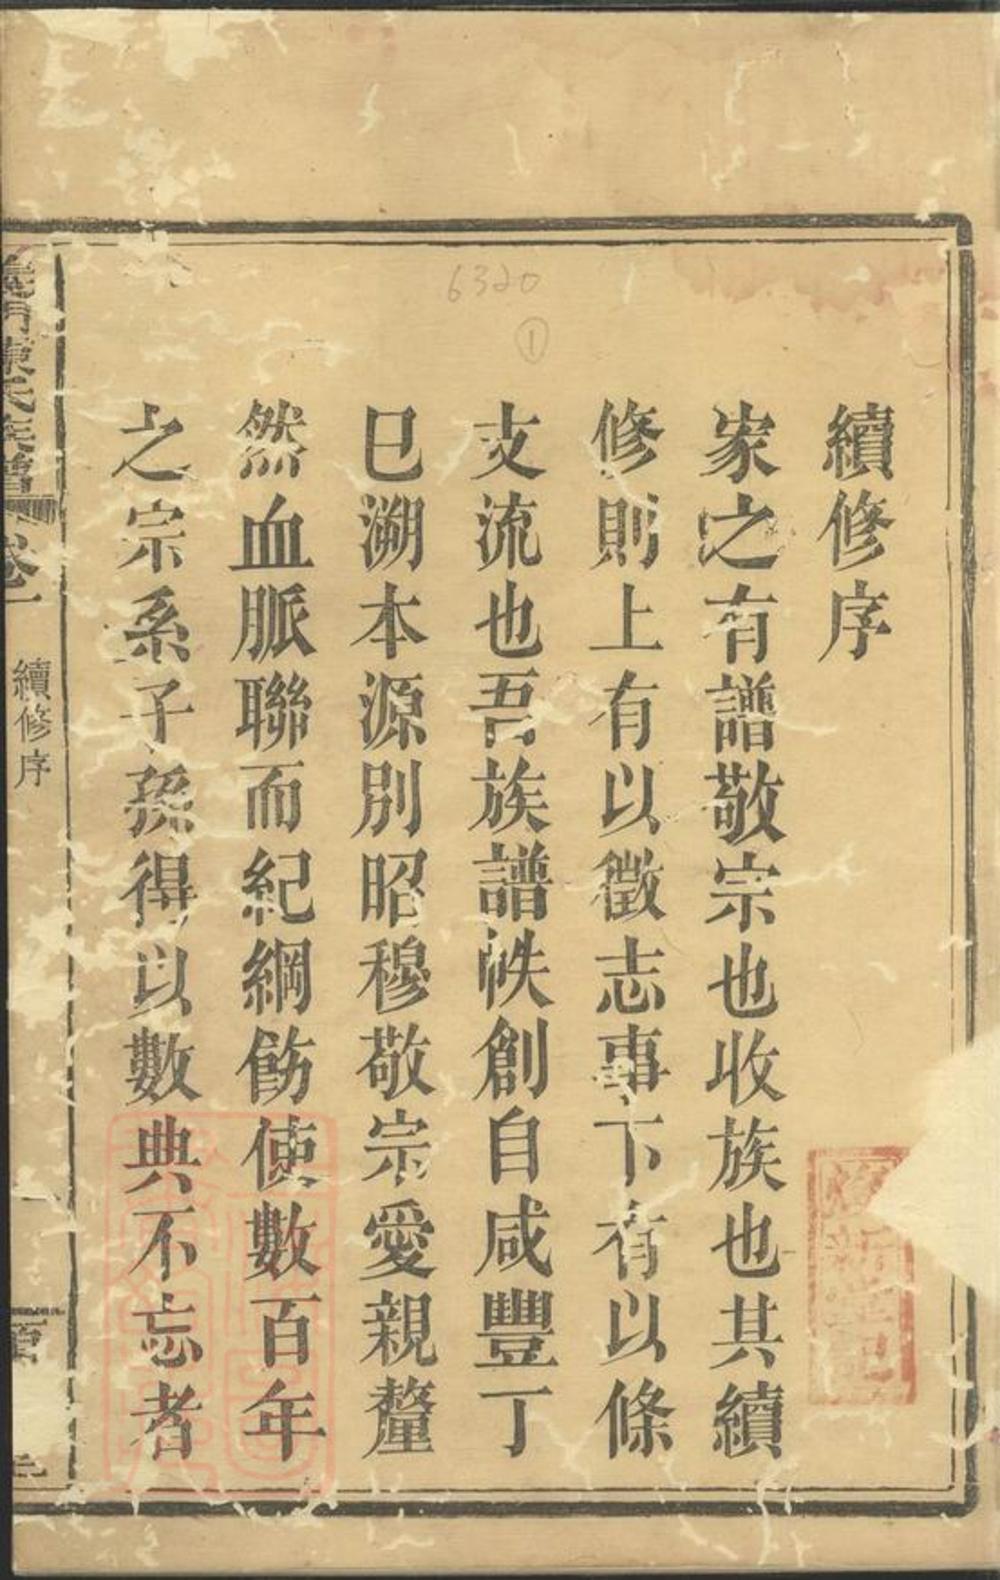 6320
1
續修序
家之有譜敬宗也收族也其續
修則上有以徵志事下有以條
支流也吾族譜帙創自咸豐丁
巳溯本源別昭穆敬宗愛親釐
然血脈聯而紀綱飭使數百年
之宗系子孫得以數典不忘者
義門陳氏族譜 卷一 續修序